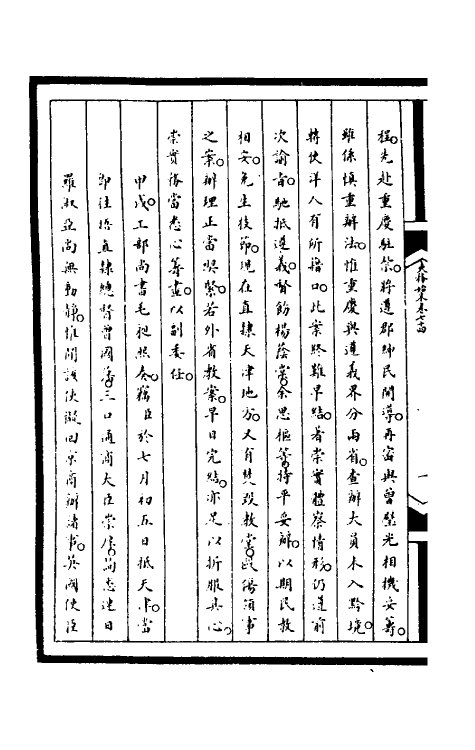 程。先赴重慶駐紮。將遵郡紳民開導。再密與曾璧光相機妥籌。
雖係慎重辦法。惟重慶與遵義界分兩省。查辦大員未入黔境。
轉使洋人有所藉口。此案終難早結。著崇實體察情形。仍遵前
次諭旨。馳抵遵義。督飭楊蔭棠余思樞等持平妥辦。以期民教
相安。免生枝節。現在直隸天津地方。又有焚毀教堂。毆傷領事
之案。辦理正當喫緊。若外省教案。早日完結。亦足以折服其心。
崇實務當悉心籌畫。以副委任。
甲戌。工部尚書毛昶熙奏。竊臣於七月初五日抵天津。當
即往晤直隸總督曾國藩。三口通商大臣崇厚。尚志連日
羅淑亞尚無動靜。惟聞該使擬回京商辦諸事。英國使臣
夷務 卷七十四
一